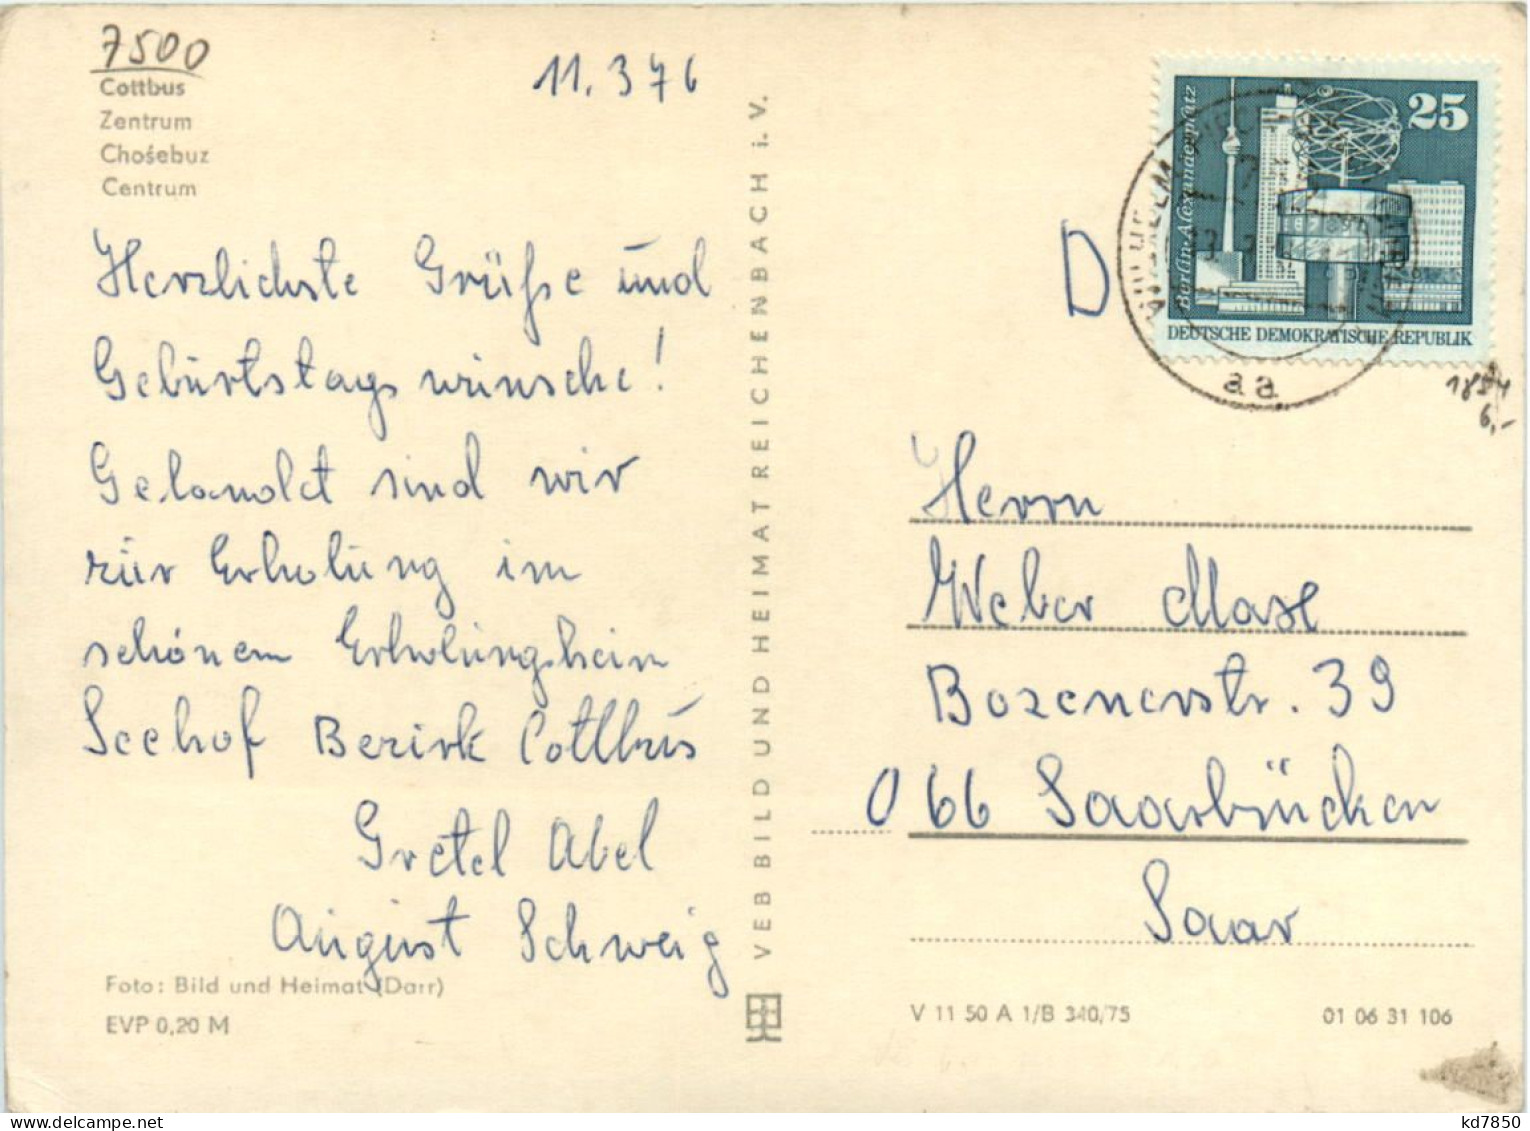 7500
Cottbus
Zentrum
Chośebuz
Centrum
11.3 76
Herzlichste Grüße und
Geburtstags wünsche!
Gelandet sind wir
zur Erholung im
schönem Erholungsheim
Seehof Bezirk Cottbus
Gretel Abel
August Schweig
Foto: Bild und Heimat (Darr)
EVP 0,20 M
VEB BILD UND HEIMAT REICHENBACH i. V.
Berlin-Alexanderplatz
25
DEUTSCHE DEMOKRATISCHE REPUBLIK
aa
D
6,-
Herrn
Weber Max
Bozenerstr. 39
066 Saarbrücken
Saar
V 11 50 A 1/B 340/75
01 06 31 106
kd7850